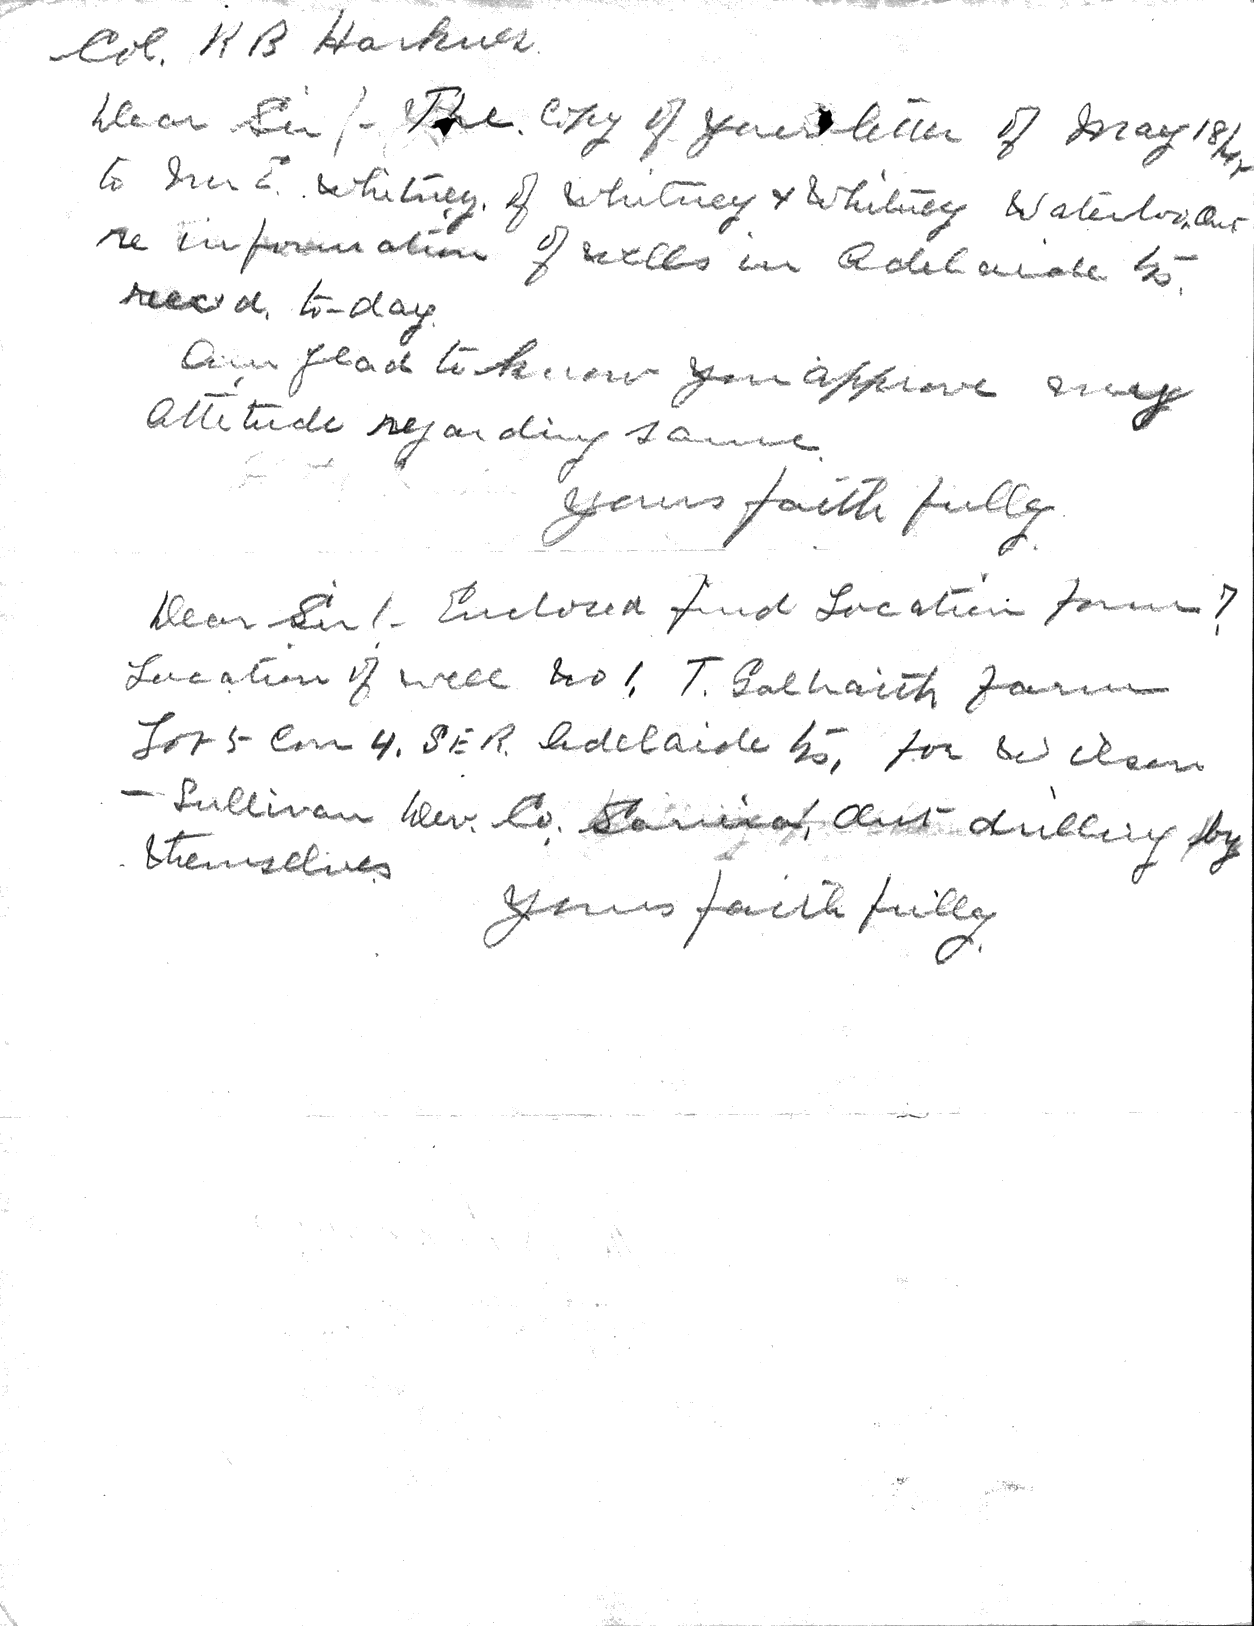 Col. R B Harkness
Dear Sir/- The Copy of your letter of May 18/
to Mr E. Whitney, of Whitney & Whitney Waterloo, Ont
re information of wells in Adelaide tp.
rec'd. to-day.
Am glad to know you approve my
attitude regarding same.
Yours faithfully.
Dear Sir/- Enclosed find Location form?
Location of well No 1, T. Galbraith farm
Lot 5 Con 4. S E R. Adelaide tp, for Wilson
- Sullivan Dev. Co. Sarnia, Ont drilling by
themselves
Yours faithfully.